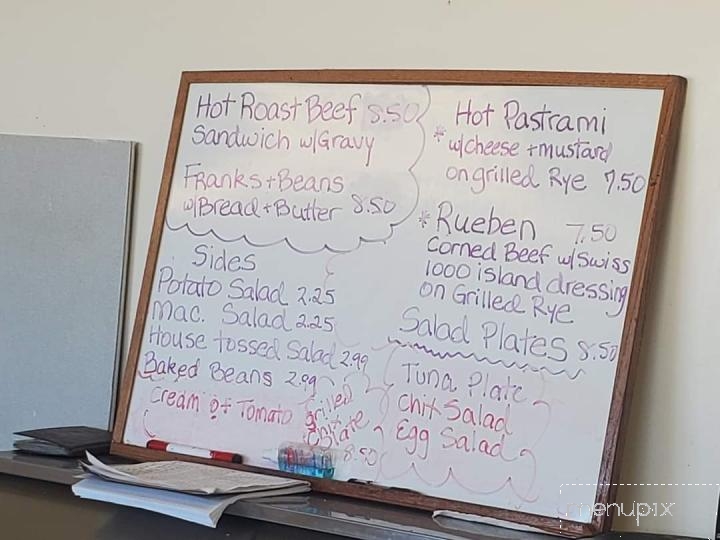 Hot Roast Beef 8.50
Sandwich w/Gravy
Franks + Beans
w/Bread + Butter 8.50
Sides
Potato Salad 2.25
Mac. Salad 2.25
House tossed Salad 2.99
Baked Beans 2.99
Cream of Tomato
grilled
Plate
8.50
Hot Pastrami
* w/cheese + mustard
on grilled Rye 7.50
* Rueben 7.50
Corned Beef w/Swiss
1000 island dressing
on Grilled Rye
Salad Plates 8.50
Tuna Plate
Chix Salad
Egg Salad
menupix